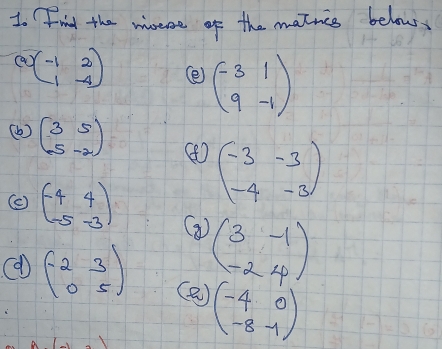 1. Find the inverse of the matrices below.
(a) (-1 2
1 -4)
(b) (3 5
-5 -2)
(c) (-4 4
-5 -3)
(d) (-2 3
0 5)
(e) (-3 1
9 -1)
(f) (-3 -3
-4 -3)
(g) (3 -1
-2 4)
(h) (-4 0
-8 -1)